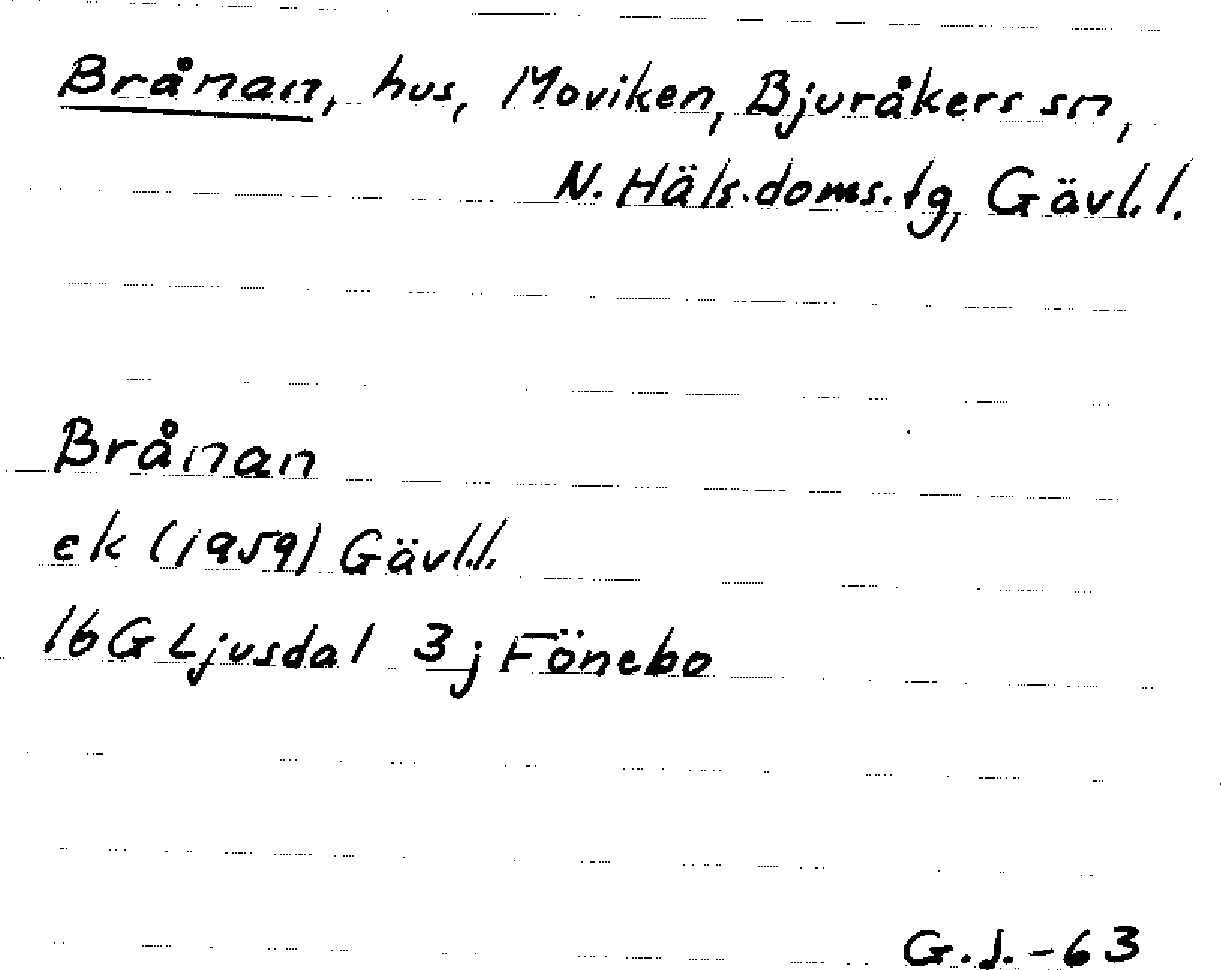 Brånan, hus, Moviken, Bjuråkers sn,
N. Häls. doms. tg, Gävl.l.
Brånan
ek (1959) Gävl.l.
16G Ljusdal 3j Fönebo
G.J.-63